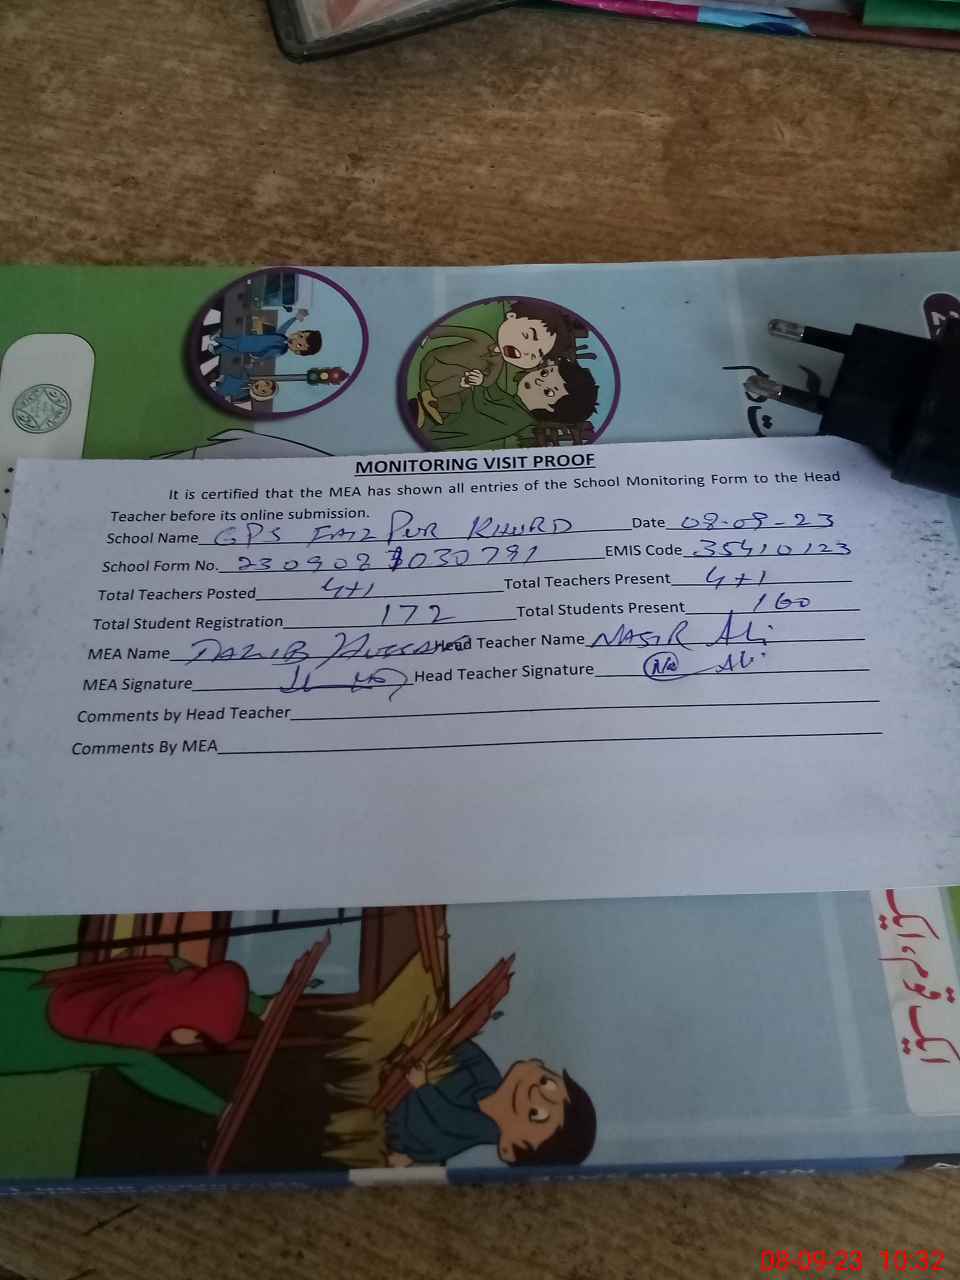 MONITORING VISIT PROOF
It is certified that the MEA has shown all entries of the School Monitoring Form to the Head
Teacher before its online submission.
School Name GPS FAIZ PUR KHURD Date 08-09-23
School Form No. 230908 1030791 EMIS Code 35410123
Total Teachers Posted 4+1 Total Teachers Present 4+1
Total Student Registration 172 Total Students Present 160
MEA Name Head Teacher Name NASIR Ali
MEA Signature Head Teacher Signature Ali
Comments by Head Teacher
Comments By MEA
08-09-23 10:32